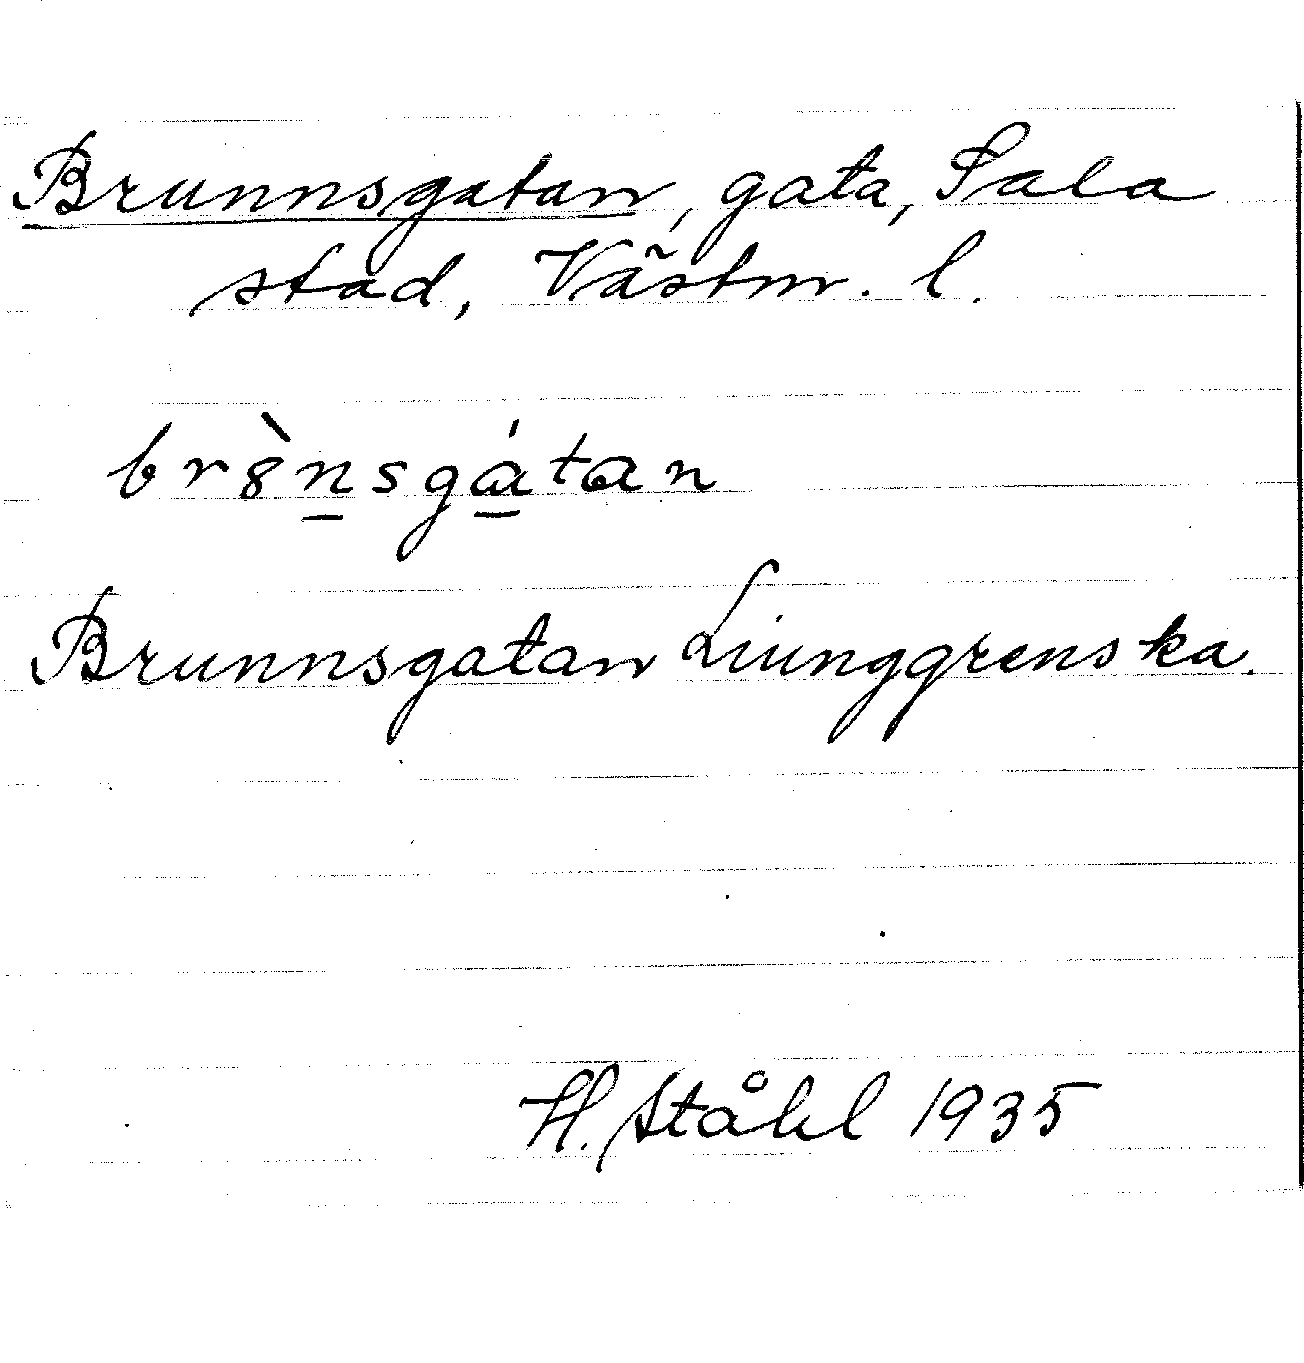 Brunnsgatan, gata, Sala
stad, Västm. l.
br8̀n̲sgá̲tan
Brunnsgatan Liunggrenska.
H. Ståhl 1935